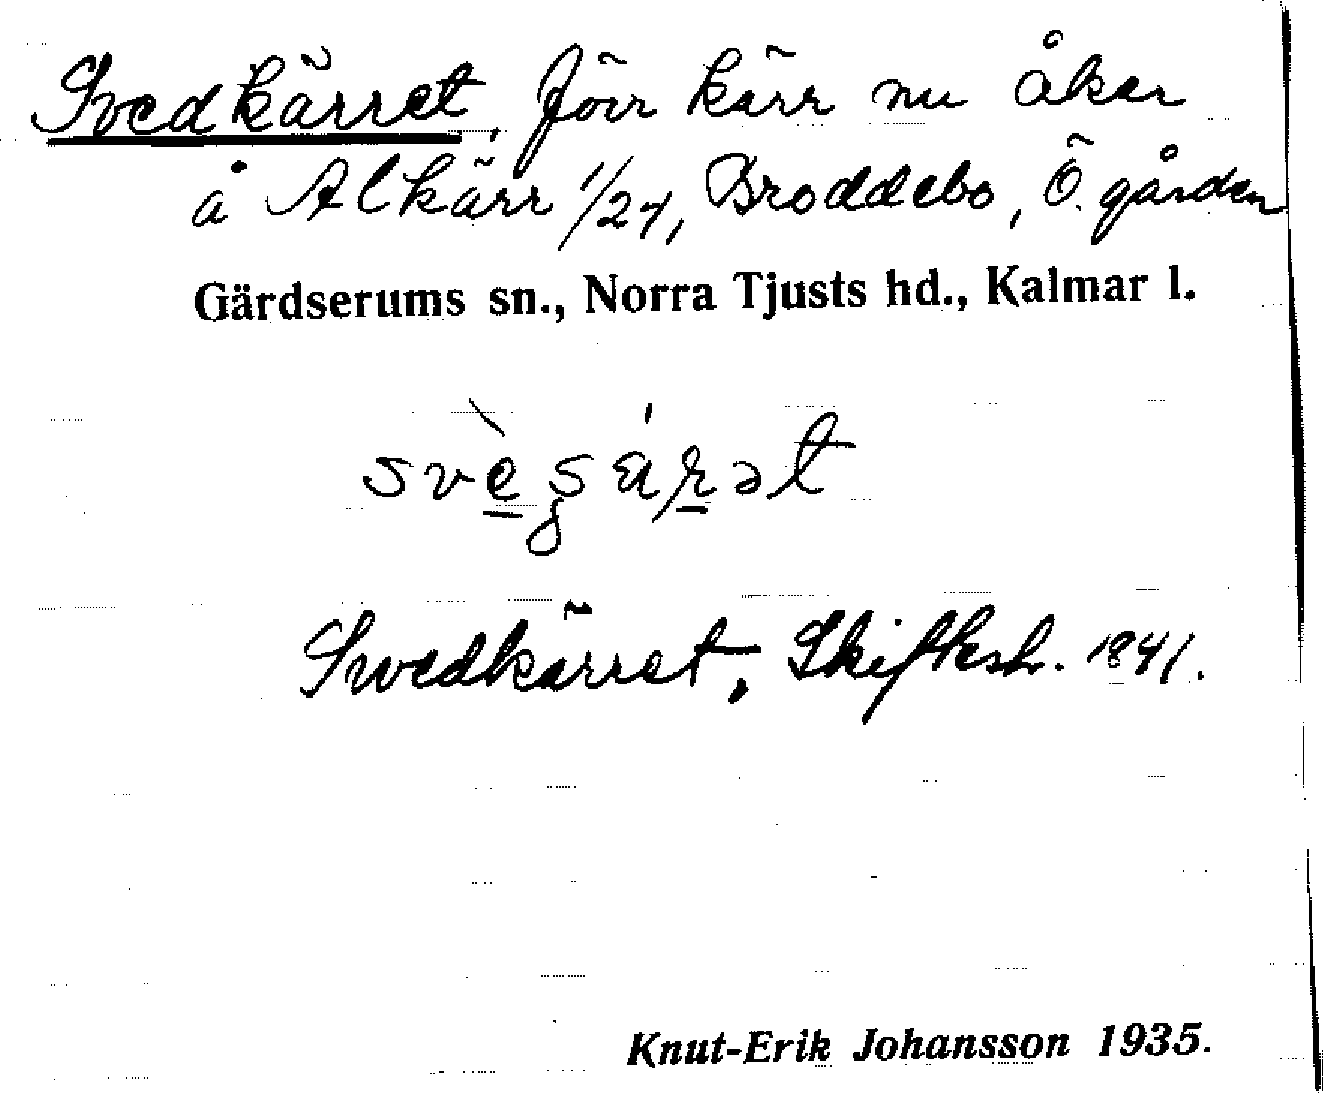 Svedkärret, förr kärr nu åker
å Alkärr 1/24, Broddebo, Ö. gården
Gärdserums sn., Norra Tjusts hd., Kalmar l.
Swedkärret, Skiftesh. 1841.
Knut-Erik Johansson 1935.